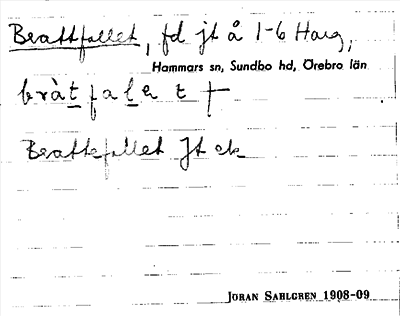 Brattfallet, fd jt å 1-6 Harg,
Hammars sn, Sundbo hd, Örebro län
bràt falet †
Brattefallet Jt ek
JÖRAN SAHLGREN 1908-09